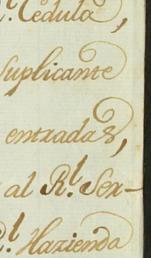 Cedula,
Suplicante
entradas,
al R.^l Ser-
R.^l Hazienda